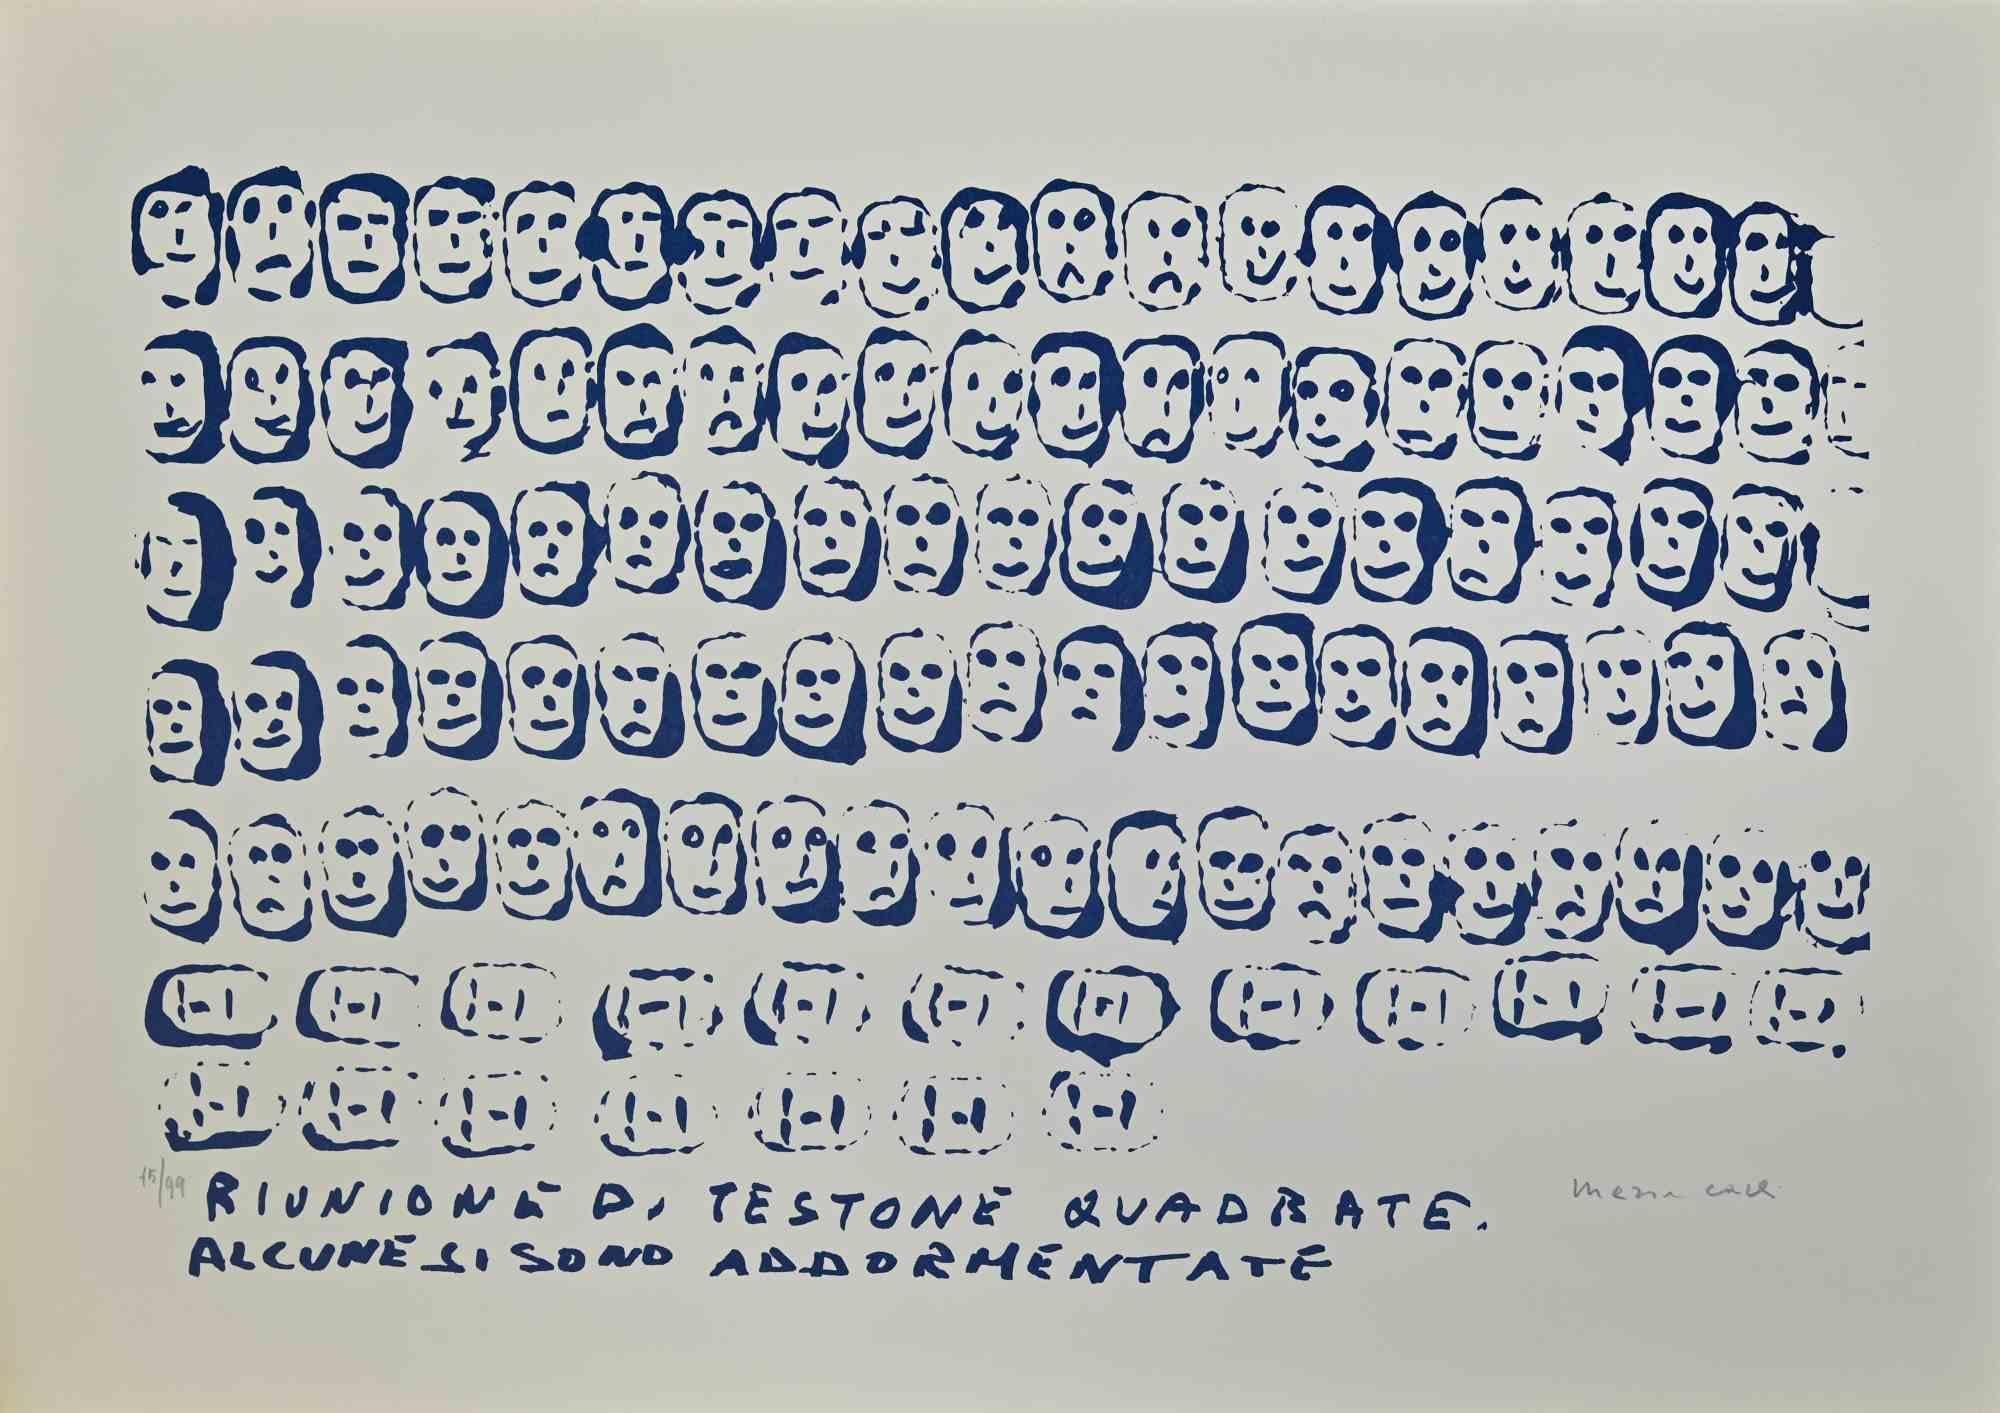 15/99
RIUNIONE DI TESTONE QUADRATE.
ALCUNE SI SONO ADDORMENTATE